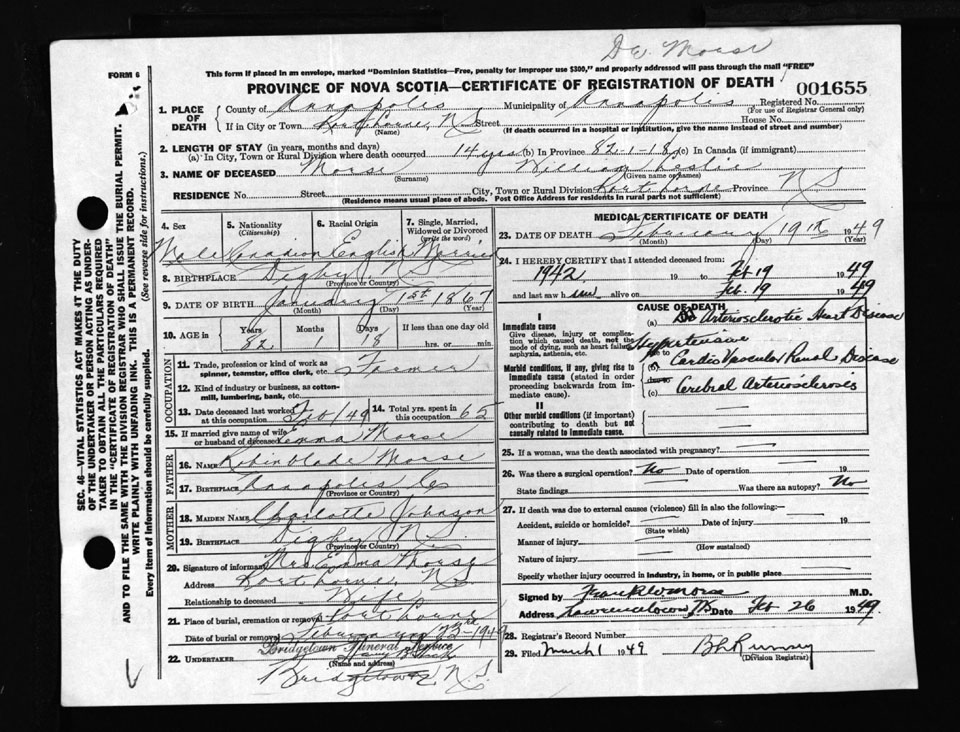 Dr. Morse
FORM 6
This form if placed in an envelope, marked "Dominion Statistics—Free, penalty for improper use $300," and properly addressed will pass through the mail "FREE"
PROVINCE OF NOVA SCOTIA—CERTIFICATE OF REGISTRATION OF DEATH
001655
1. PLACE OF DEATH
County of Annapolis Municipality of Annapolis Registered No.
(For use of Registrar General only)
If in City or Town Port Lorne, N.S. Street House No.
(Name) (If death occurred in a hospital or institution, give the name instead of street and number)
2. LENGTH OF STAY (in years, months and days)
(a) In City, Town or Rural Division where death occurred 14 yrs (b) In Province 82-1-18 (c) In Canada (if immigrant)
3. NAME OF DECEASED Morse William Leslie
(Surname) (Given name or names)
RESIDENCE No. Street City, Town or Rural Division Port Lorne Province N S
(Residence means usual place of abode. Post Office Address for residents in rural parts not sufficient)
4. Sex
5. Nationality (Citizenship)
6. Racial Origin
7. Single, Married, Widowed or Divorced (write the word)
Male Canadian English Married
8. BIRTHPLACE Digby, N.S.
(Province or Country)
9. DATE OF BIRTH January 1st 1867
(Month) (Day) (Year)
10. AGE in Years Months Days If less than one day old
82 1 18 hrs. or min.
OCCUPATION
11. Trade, profession or kind of work as spinner, teamster, office clerk, etc. Farmer
12. Kind of industry or business, as cotton-mill, lumbering, bank, etc.
13. Date deceased last worked at this occupation Feb/49
14. Total yrs. spent in this occupation 65
15. If married give name of wife or husband of deceased Emma Morse
FATHER
16. Name Morse
17. Birthplace Annapolis Co
(Province or Country)
MOTHER
18. Maiden Name Charlotte Johnson
19. Birthplace Digby N.S.
(Province or Country)
20. Signature of informant Mrs Emma Morse
Address Port Lorne, N.S.
Relationship to deceased Wife
21. Place of burial, cremation or removal Port Lorne
Date of burial or removal February 23rd-1949
Bridgetown Funeral Service
22. UNDERTAKER
(Name and address)
Bridgetown, N.S.
MEDICAL CERTIFICATE OF DEATH
23. DATE OF DEATH February 19th 1949
(Month) (Day) (Year)
24. I HEREBY CERTIFY that I attended deceased from:
1942 19 to Feb 19 1949
and last saw him alive on Feb. 19 1949
CAUSE OF DEATH
I
Immediate cause
Give disease, injury or complication which caused death, not the mode of dying, such as heart failure, asphyxia, asthenia, etc.
(a) Arteriosclerotic Heart Disease
Hypertensive
due to
Cardio Vascular Renal Disease
Morbid conditions, if any, giving rise to immediate cause (stated in order proceeding backwards from immediate cause).
due to
(c) Cerebral Arteriosclerosis
II
Other morbid conditions (if important) contributing to death but not causally related to immediate cause.
25. If a woman, was the death associated with pregnancy?
26. Was there a surgical operation? No Date of operation 19
State findings Was there an autopsy? No
27. If death was due to external causes (violence) fill in also the following:—
Accident, suicide or homicide? Date of injury 19
(State which)
Manner of injury
(How sustained)
Nature of injury
Specify whether injury occurred in industry, in home, or in public place
Signed by Frank W Morse M.D.
Address Lawrencetown NS Date Feb 26 1949.
28. Registrar's Record Number
29. Filed March 1 1949
(Division Registrar)
SEC. 46—VITAL STATISTICS ACT MAKES IT THE DUTY
OF THE UNDERTAKER OR PERSON ACTING AS UNDER-
TAKER TO OBTAIN ALL THE PARTICULARS REQUIRED
IN THE "CERTIFICATE OF REGISTRATION OF DEATH"
AND TO FILE THE SAME WITH THE DIVISION REGISTRAR WHO SHALL ISSUE THE BURIAL PERMIT.
WRITE PLAINLY WITH UNFADING INK. THIS IS A PERMANENT RECORD.
Every item of information should be carefully supplied. (See reverse side for instructions.)